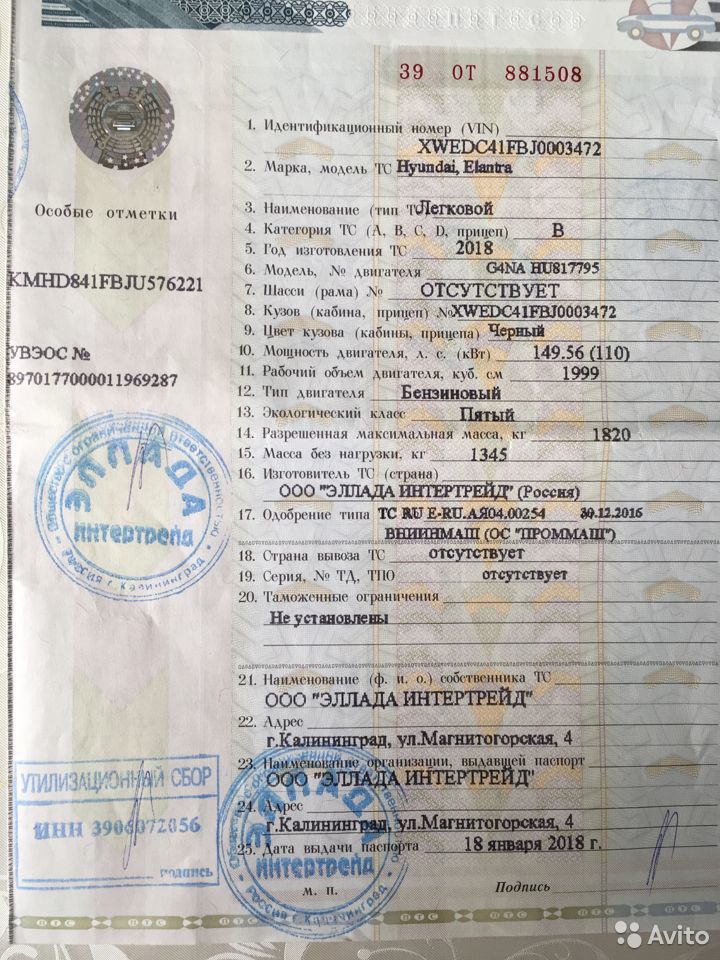 39 ОТ 881508
1. Идентификационный номер (VIN)
XWEDC41FBJ0003472
2. Марка, модель ТС Hyundai, Elantra
Особые отметки
3. Наименование (тип ТС Легковой
4. Категория ТС (А, В, С, D, прицеп) В
5. Год изготовления ТС 2018
6. Модель, № двигателя G4NA HU817795
KMHD841FBJU576221
7. Шасси (рама) № ОТСУТСТВУЕТ
8. Кузов (кабина, прицеп) № XWEDC41FBJ0003472
9. Цвет кузова (кабины, прицепа) Черный
УВЭОС №
10. Мощность двигателя, л. с. (кВт) 149.56 (110)
11. Рабочий объем двигателя, куб. см 1999
8970177000011969287
12. Тип двигателя Бензиновый
13. Экологический класс Пятый
14. Разрешенная максимальная масса, кг 1820
15. Масса без нагрузки, кг 1345
16. Изготовитель ТС (страна)
ООО "ЭЛЛАДА ИНТЕРТРЕЙД" (Россия)
17. Одобрение типа ТС RU E-RU.АЯ04.00254 30.12.2016
ВНИИНМАШ (ОС "ПРОММАШ")
Общество с ограниченной ответственностью
ЭЛЛАДА
интертрейд
Россия г. Калининград
18. Страна вывоза ТС отсутствует
19. Серия, № ТД, ТПО отсутствует
20. Таможенные ограничения
Не установлены
21. Наименование (ф. и. о.) собственника ТС
ООО "ЭЛЛАДА ИНТЕРТРЕЙД"
22. Адрес
г.Калининград, ул.Магнитогорская, 4
23. Наименование организации, выдавшей паспорт
ООО "ЭЛЛАДА ИНТЕРТРЕЙД"
24. Адрес
г.Калининград, ул.Магнитогорская, 4
25. Дата выдачи паспорта 18 января 2018 г.
УТИЛИЗАЦИОННЫЙ СБОР
ИНН 3906072056
подпись
ЭЛЛАДА
интертрейд
Россия г. Калининград
М. П.
Подпись
ПТС ПТС ПТС ПТС ПТС
Avito